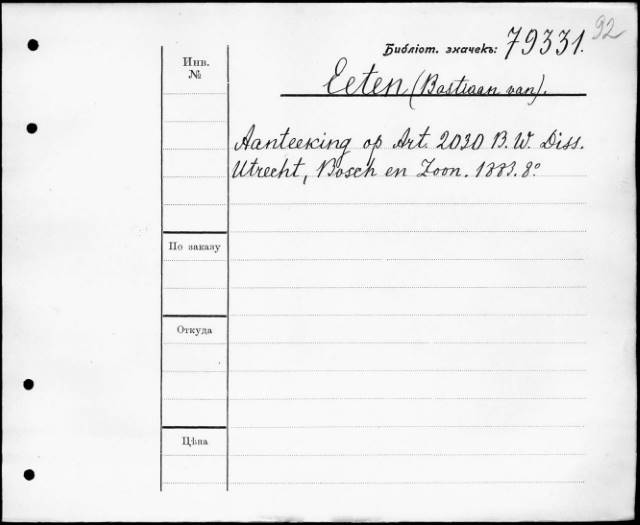 92
Библіот. значекъ: 79331.
Инв.
№
Eeten (Bastiaan van).
Aanteeking op Art. 2030 B.W. Diss.
Utrecht, Bosch en Zoon. 1883. 8º
По заказу
Откуда
Цѣна